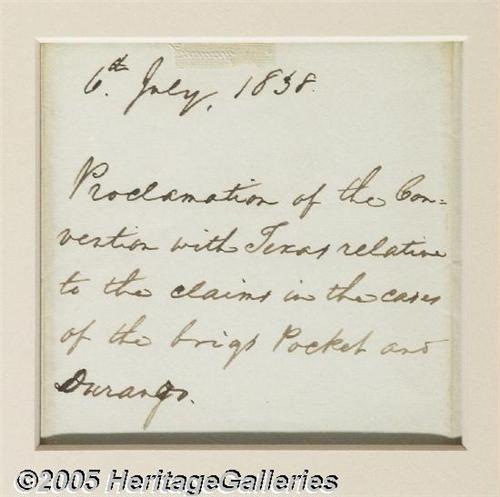 6th July, 1838.
Proclamation of the Con=
vention with Texas relative
to the claims in the cases
of the brigs Pocket and
Durango.
©2005 HeritageGalleries